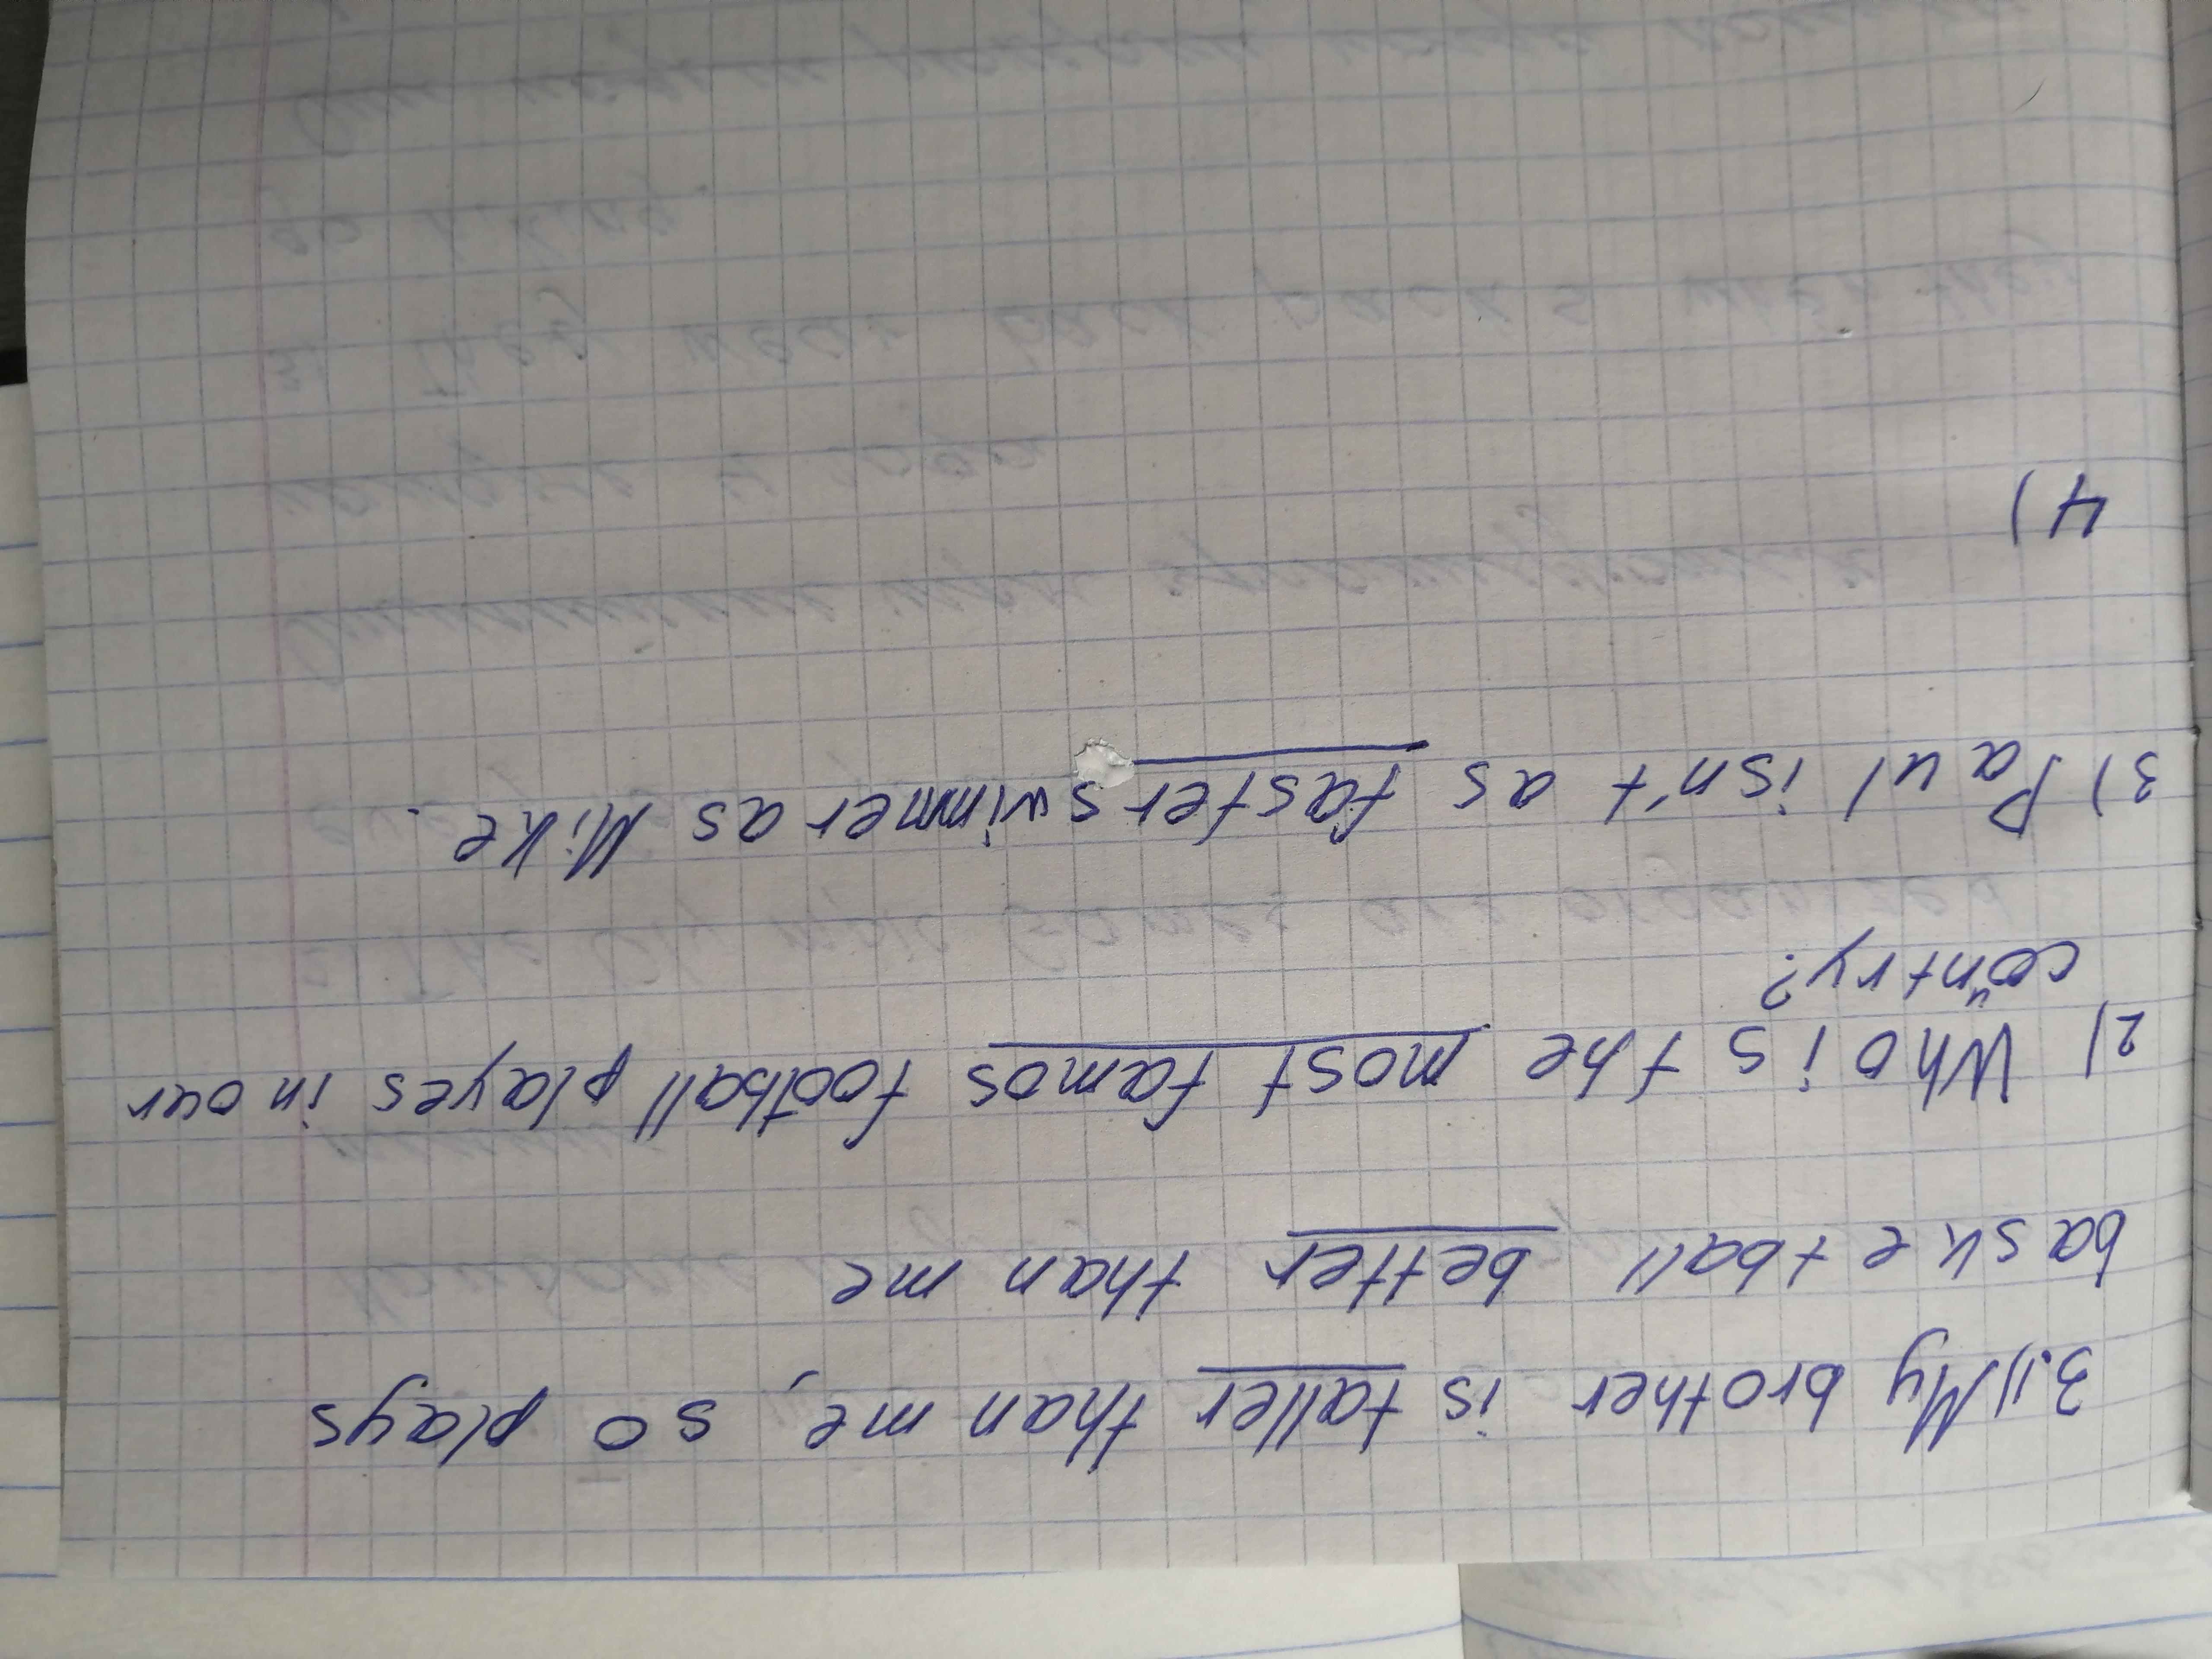 3.1) My brother is taller than me, so plays
basketball better than me
2) Who is the most famos football playes in our
country?
3) Paul isn't as faster swimmer as Mike.
4)